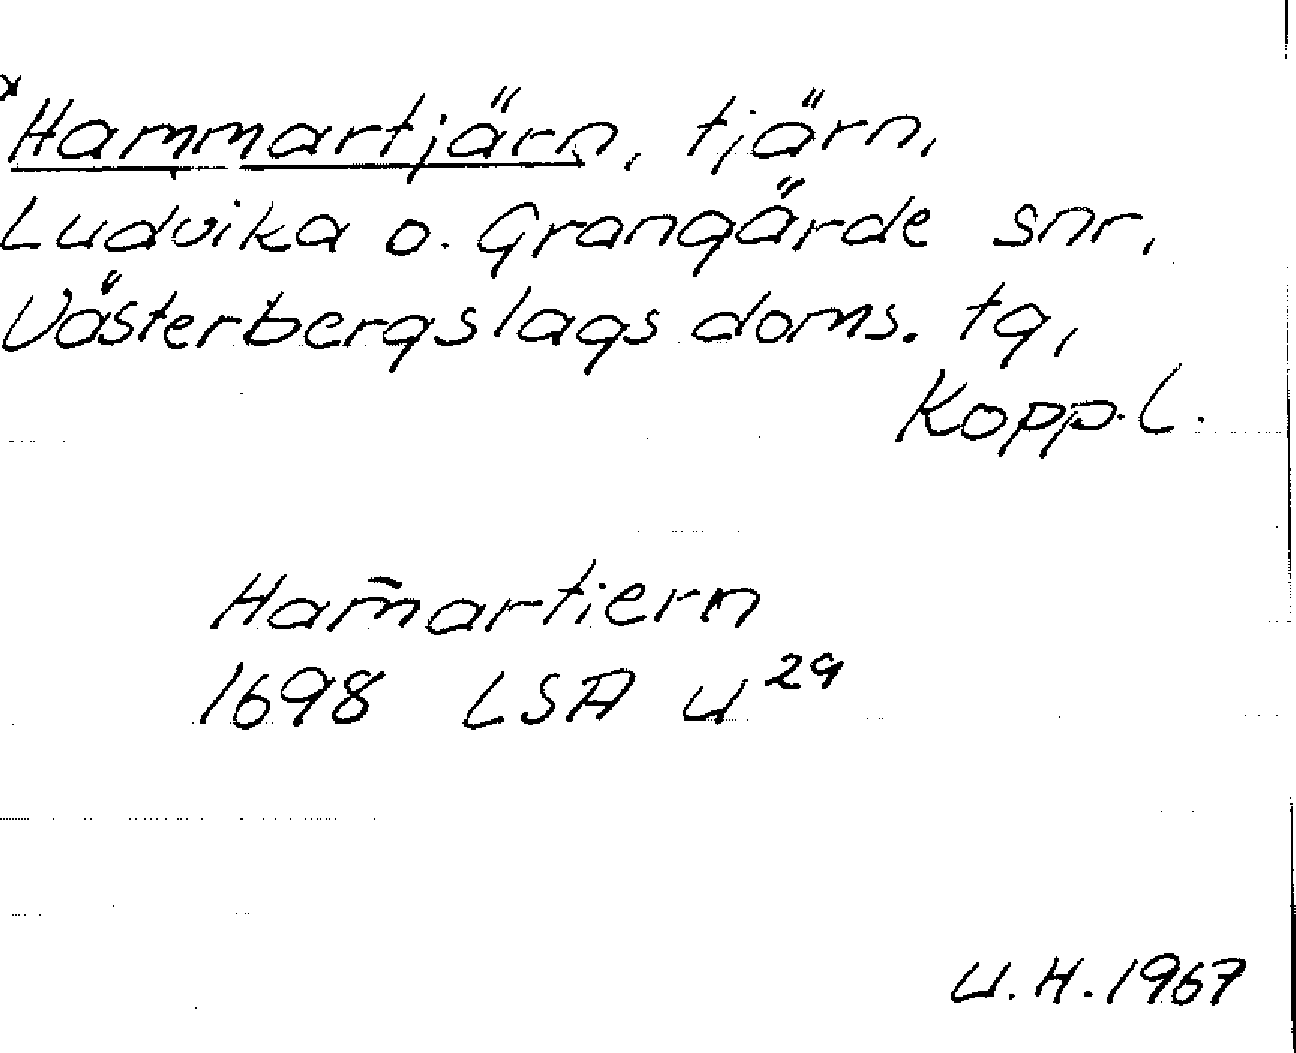 *Hammartjärn, tjärn,
Ludvika o. Grangärde snr,
Västerbergslags doms. tg,
Kopp. l.
Ham̄artiern
1698 LSA U²⁹
U.H. 1967